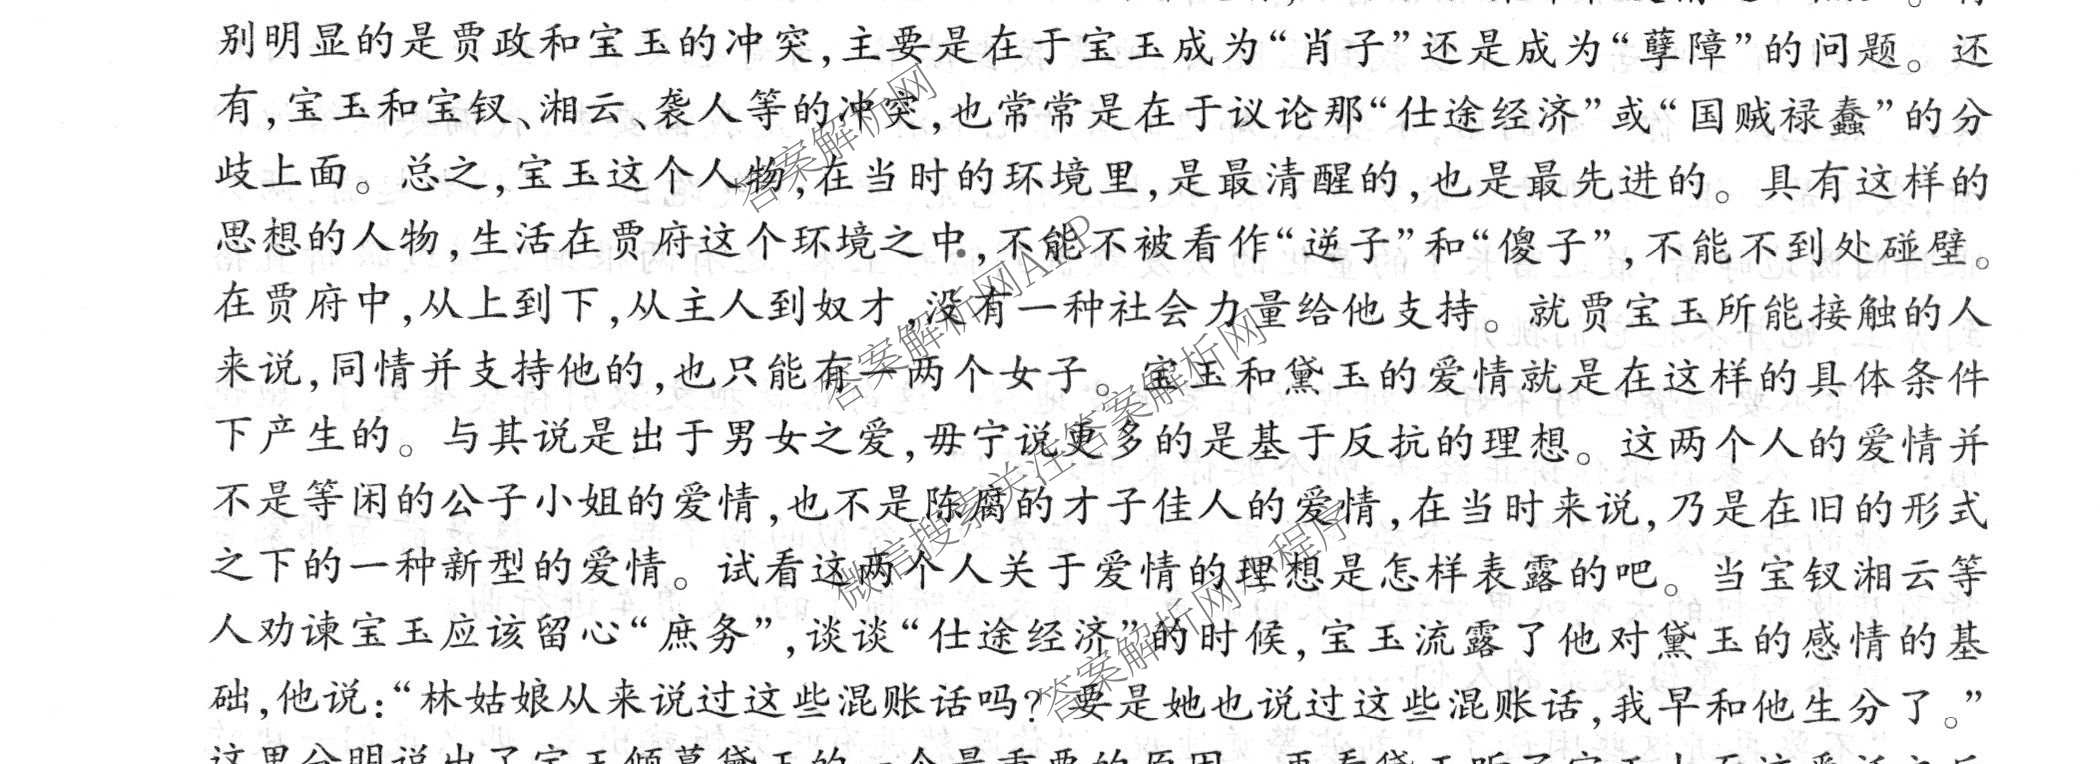 别明显的是贾政和宝玉的冲突,主要是在于宝玉成为“肖子”还是成为“孽障”的问题。还
有,宝玉和宝钗、湘云、袭人等的冲突,也常常是在于议论那“仕途经济”或“国贼禄蠹”的分
歧上面。总之,宝玉这个人物,在当时的环境里,是最清醒的,也是最先进的。具有这样的
思想的人物,生活在贾府这个环境之中,不能不被看作“逆子”和“傻子”,不能不到处碰壁。
在贾府中,从上到下,从主人到奴才,没有一种社会力量给他支持。就贾宝玉所能接触的人
来说,同情并支持他的,也只能有一两个女子。宝玉和黛玉的爱情就是在这样的具体条件
下产生的。与其说是出于男女之爱,毋宁说更多的是基于反抗的理想。这两个人的爱情并
不是等闲的公子小姐的爱情,也不是陈腐的才子佳人的爱情,在当时来说,乃是在旧的形式
之下的一种新型的爱情。试看这两个人关于爱情的理想是怎样表露的吧。当宝钗湘云等
人劝谏宝玉应该留心“庶务”,谈谈“仕途经济”的时候,宝玉流露了他对黛玉的感情的基
础,他说:“林姑娘从来说过这些混账话吗?要是她也说过这些混账话,我早和他生分了。”
这里分明说出了宝玉倾慕黛玉的一个最重要的原因。再看黛玉听了宝玉
答案解析网
答案解析网APP
微信搜索关注答案解析网
答案解析网小程序